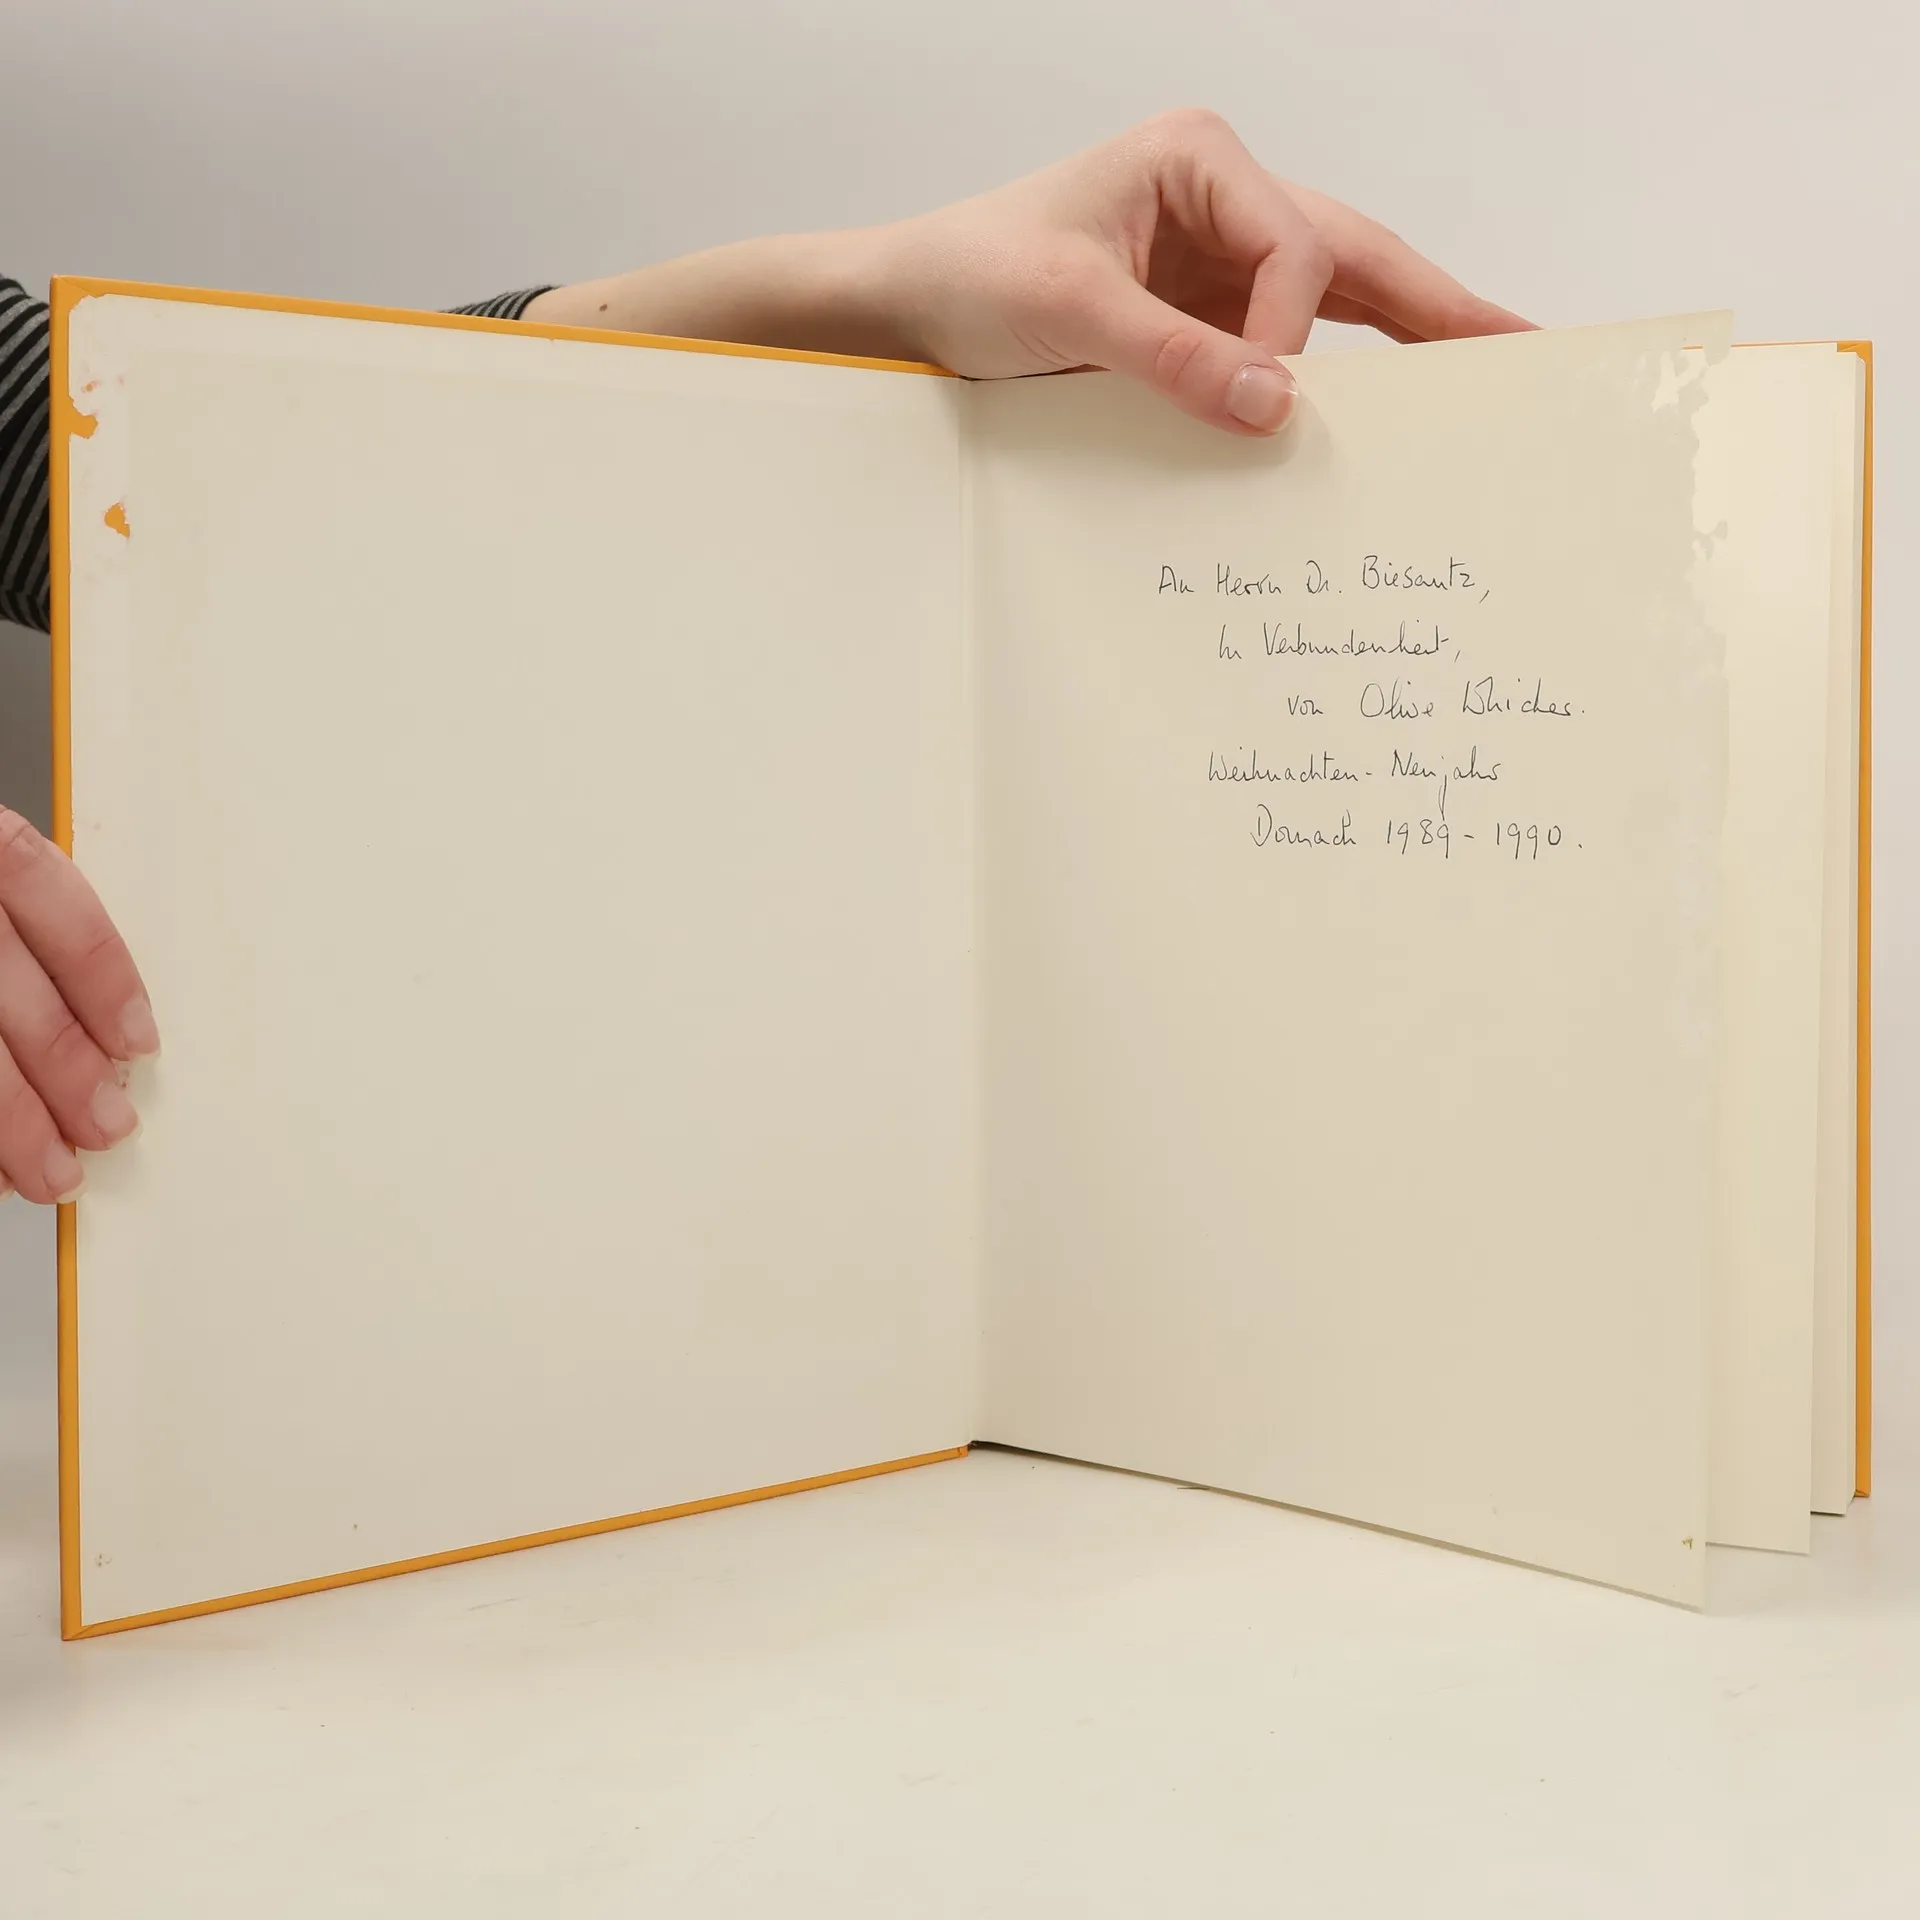 An Herrn Dr. Biesantz,
In Verbundenheit,
von Olive Whicher.
Weihnachten - Neujahr
Dornach 1989 - 1990.